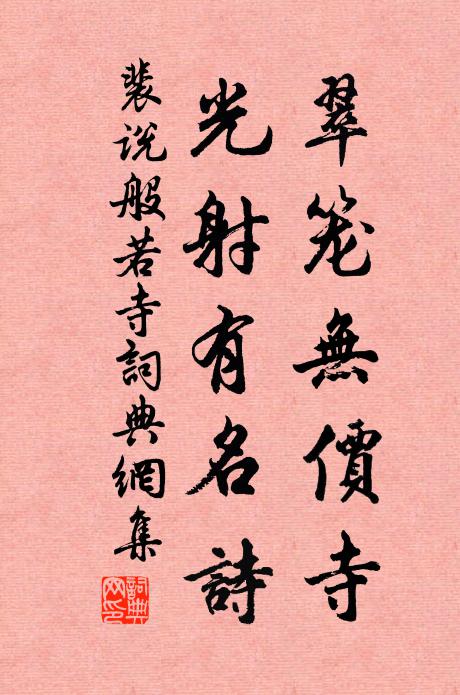 翠笼無價寺
光射有名詩
裴说般若寺詞典網集
詞典網印